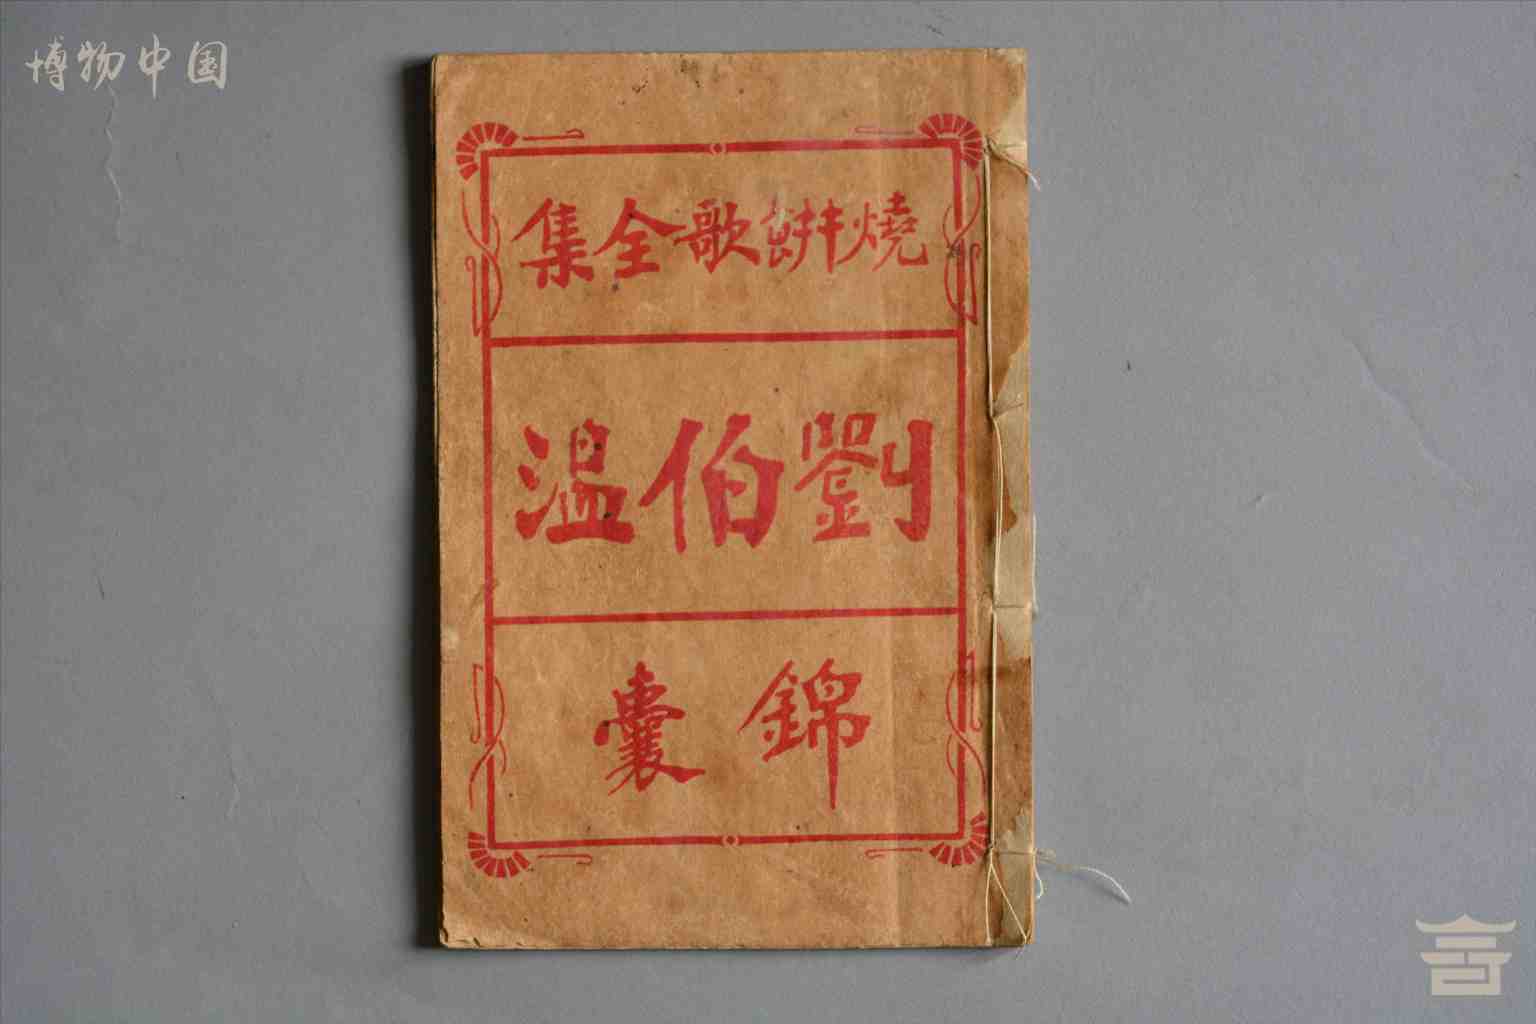 博物中国
燒餠歌全集
劉伯温
錦囊